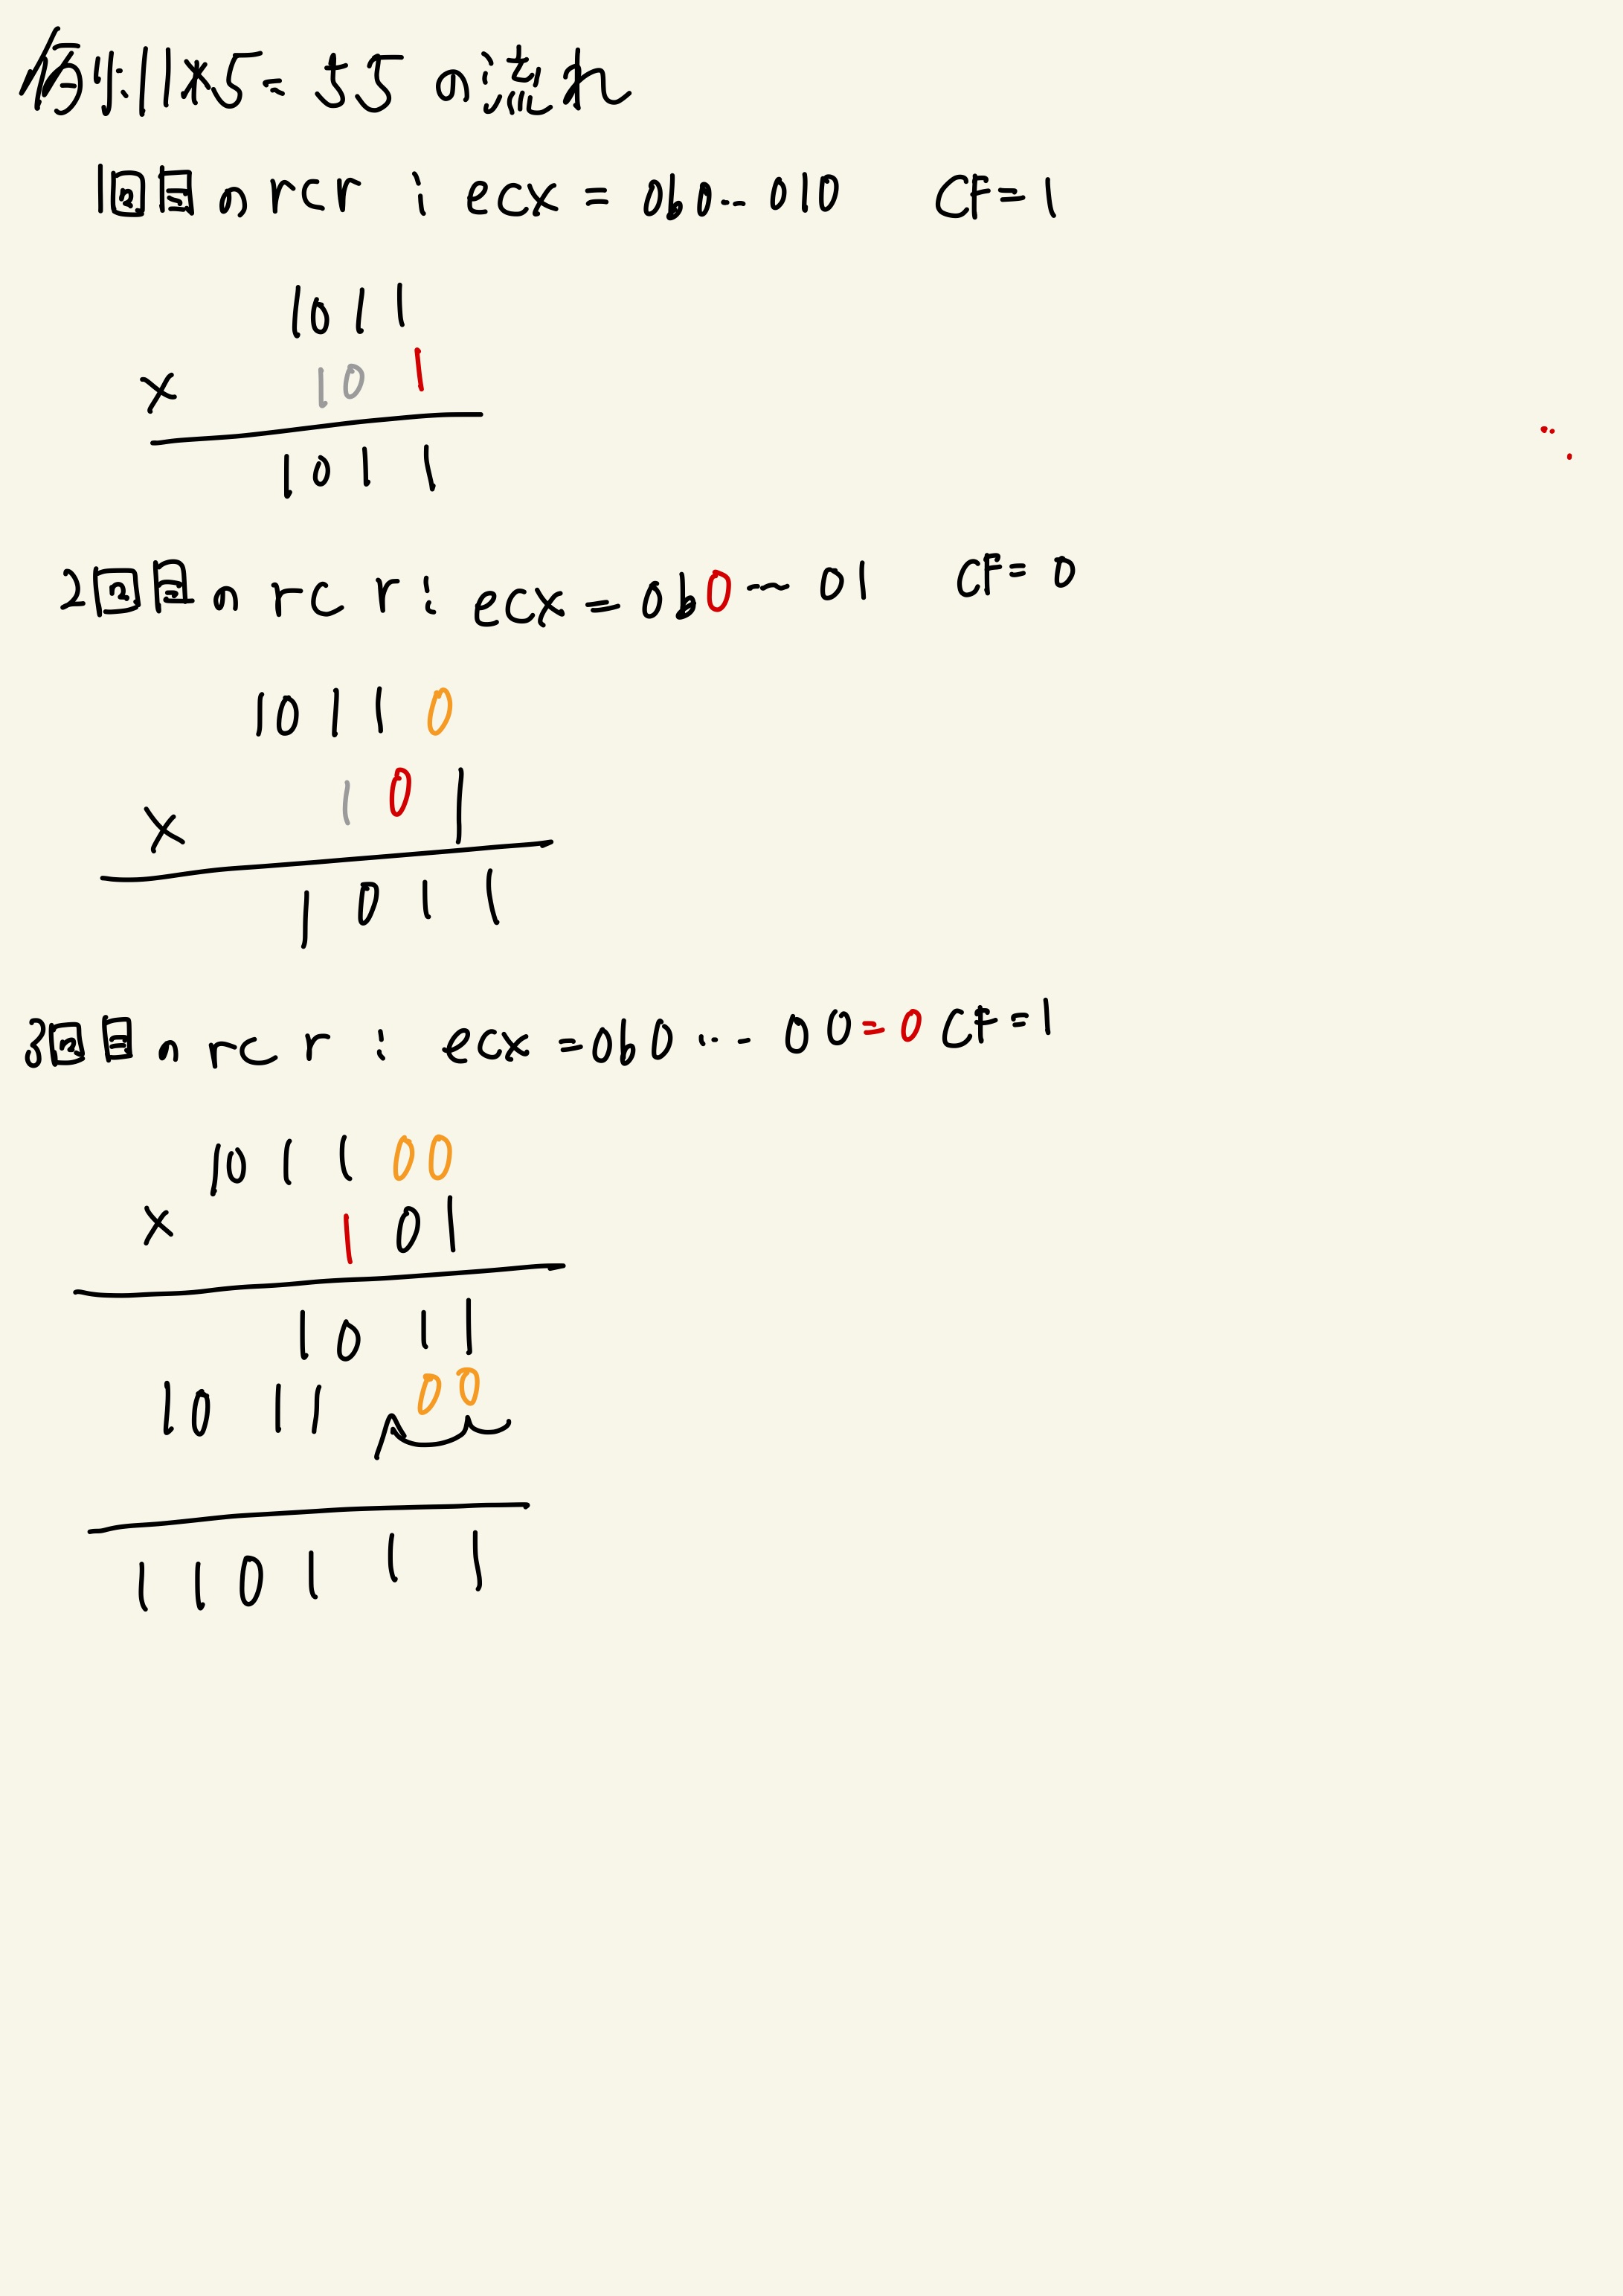 例:11×5=55の流れ
1回目のrcr:ecx=0b0...010 CF=1
1011
× 101
1011
2回目のrcr:ecx=0b0...01 CF=0
10110
× 101
1011
3回目のrcr:ecx=0b0...00=0 CF=1
101100
× 101
1011
101100
110111